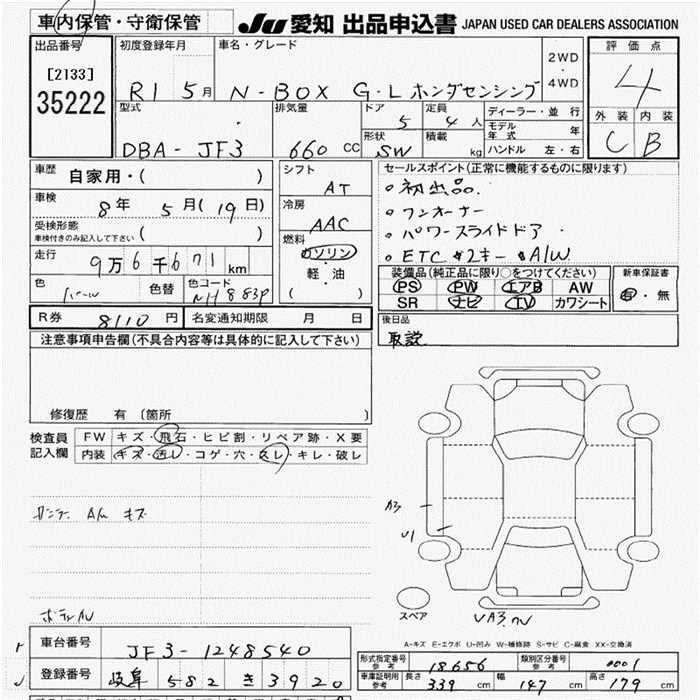 車内保管・守衛保管 JU 愛知 出品申込書 JAPAN USED CAR DEALERS ASSOCIATION
出品番号
[2133]
35222
初度登録年月
R1 5月
車名・グレード
N-BOX G・Lホンダセンシング
2WD
・
4WD
評価点
4
外装 内装
C B
型式
DBA-JF3
排気量
660 CC
ドア
5
定員
4人
形状
SW
積載
kg
ディーラー・並行
モデル年式 年
ハンドル 左・右
車歴
自家用・( )
車検
8年 5月(19日)
受検形態
車検付きのみ記入して下さい ( )
走行
9万6千671km
色
パール
色替
色コード
NH883P
シフト
AT
冷房
AAC
燃料
ガソリン
・
軽・油
( )
セールスポイント(正常に機能するものに限ります)
。初出品.
。ワンオーナー
。パワースライドドア
。ETC 2キー A/W
装備品(純正品に限り○をつけてください)
PS PW エアB AW
SR ナビ TV カワシート
新車保証書
有・無
R券 8110円 名変通知期限 月 日
後日品
取説
注意事項申告欄(不具合内容等は具体的に記入して下さい)
修復歴 有 〔箇所 〕
検査員記入欄
FW キズ・飛石・ヒビ割・リペア跡・X要
内装 キズ・汚レ・コゲ・穴・スレ・キレ・破レ
キズ
A3
U1
スペア
A-キズ E-エクボ U-凹み W-補修跡 S-サビ C-腐食 XX-交換済
車台番号 JF3-1248540
登録番号 岐阜 582 き 3920
形式指定番号
参考
18656
類別区分番号
参考
0001
車庫証明用
参考
長さ 339 cm 幅 147 cm 高さ 179 cm